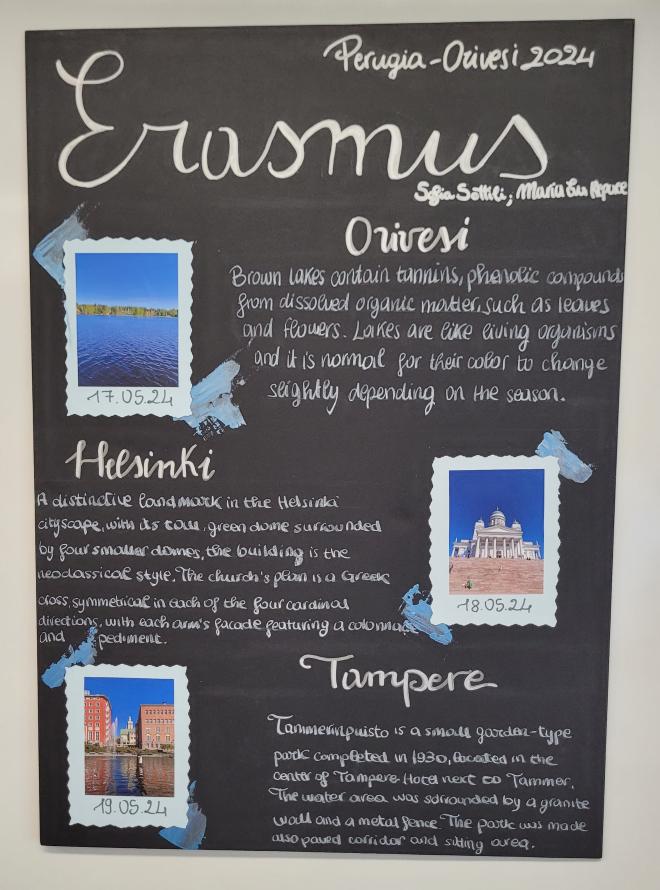 Perugia-Orivesi 2024
Erasmus
Sofia Sottili; Maria
Orivesi
Brown lakes contain tannins, phenolic compounds
from dissolved organic matter, such as leaves
and flowers. Lakes are like living organisms
and it is normal for their color to change
slightly depending on the season.
17.05.24
Helsinki
A distinctive landmark in the Helsinki
cityscape, with its tall, green dome surrounded
by four smaller domes, the building is the
neoclassical style. The church's plan is a Greek
cross, symmetrical in each of the four cardinal
directions, with each arm's facade featuring a colonnade
and pediment.
18.05.24
Tampere
Tammerinpuisto is a small garden-type
park completed in 1930, located in the
center of Tampere Hotel next to Tammer.
The water area was surrounded by a granite
wall and a metal fence. The park was made
also paved corridor and sitting area.
19.05.24